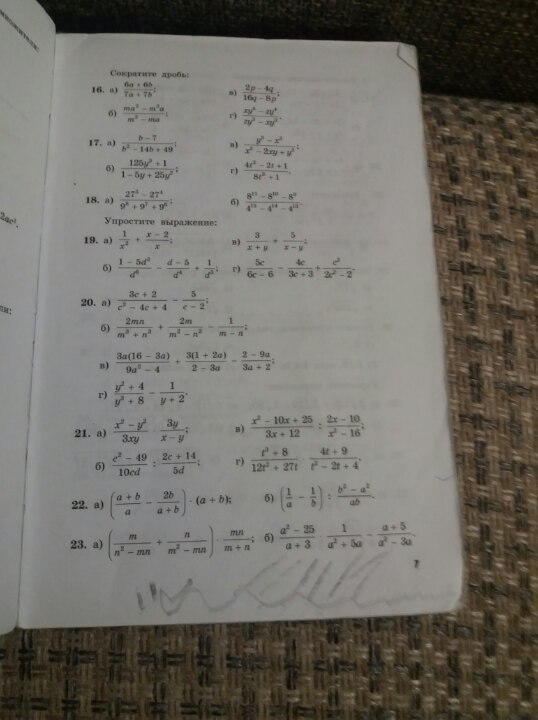 множители:
2ac².
ли:
Сократите дробь:
16. а) (6a + 6b)/(7a + 7b); в) (2p − 4q)/(16q − 8p);
б) (ma² − m²a)/(m² − ma); г)
17. а) (b − 7)/(b² − 14b + 49); в) (y² − x²)/(x² − 2xy + y²);
б) (125y³ + 1)/(1 − 5y + 25y²); г) (4t² − 2t + 1)/(8t³ + 1).
18. а) (27³ − 27⁴)/(9⁸ + 9⁷ + 9⁶); б)
Упростите выражение:
19. а) 1/x² + (x − 2)/x; в) 3/(x + y) + 5/(x − y);
б) (1 − 5d²)/d⁶ − (d − 5)/d⁴ + 1/d³; г) 5c/(6c − 6) − 4c/(3c + 3) + c²/(2c² − 2).
20. а) (3c + 2)/(c² − 4c + 4) − 5/(c − 2);
б) 2mn/(m³ + n³) + 2m/(m² − n²) − 1/(m − n);
в) 3a(16 − 3a)/(9a² − 4) + 3(1 + 2a)/(2 − 3a) − (2 − 9a)/(3a + 2);
г) (y² + 4)/(y³ + 8) − 1/(y + 2).
21. а) (x² − y²)/3xy · 3y/(x − y); в) (x² − 10x + 25)/(3x + 12) : (2x − 10)/(x² − 16);
б) (c² − 49)/10cd : (2c + 14)/5d; г) (t³ + 8)/(12t² + 27t) · (4t + 9)/(t² − 2t + 4).
22. а) ((a + b)/a − 2b/(a + b)) · (a + b); б) (1/a − 1/b) : (b² − a²)/ab.
23. а) (m/(n² − mn) + n/(m² − mn)) · mn/(m + n); б) (a² − 25)/(a + 3) · 1/(a² + 5a) − (a + 5)/(a² − 3a).
7